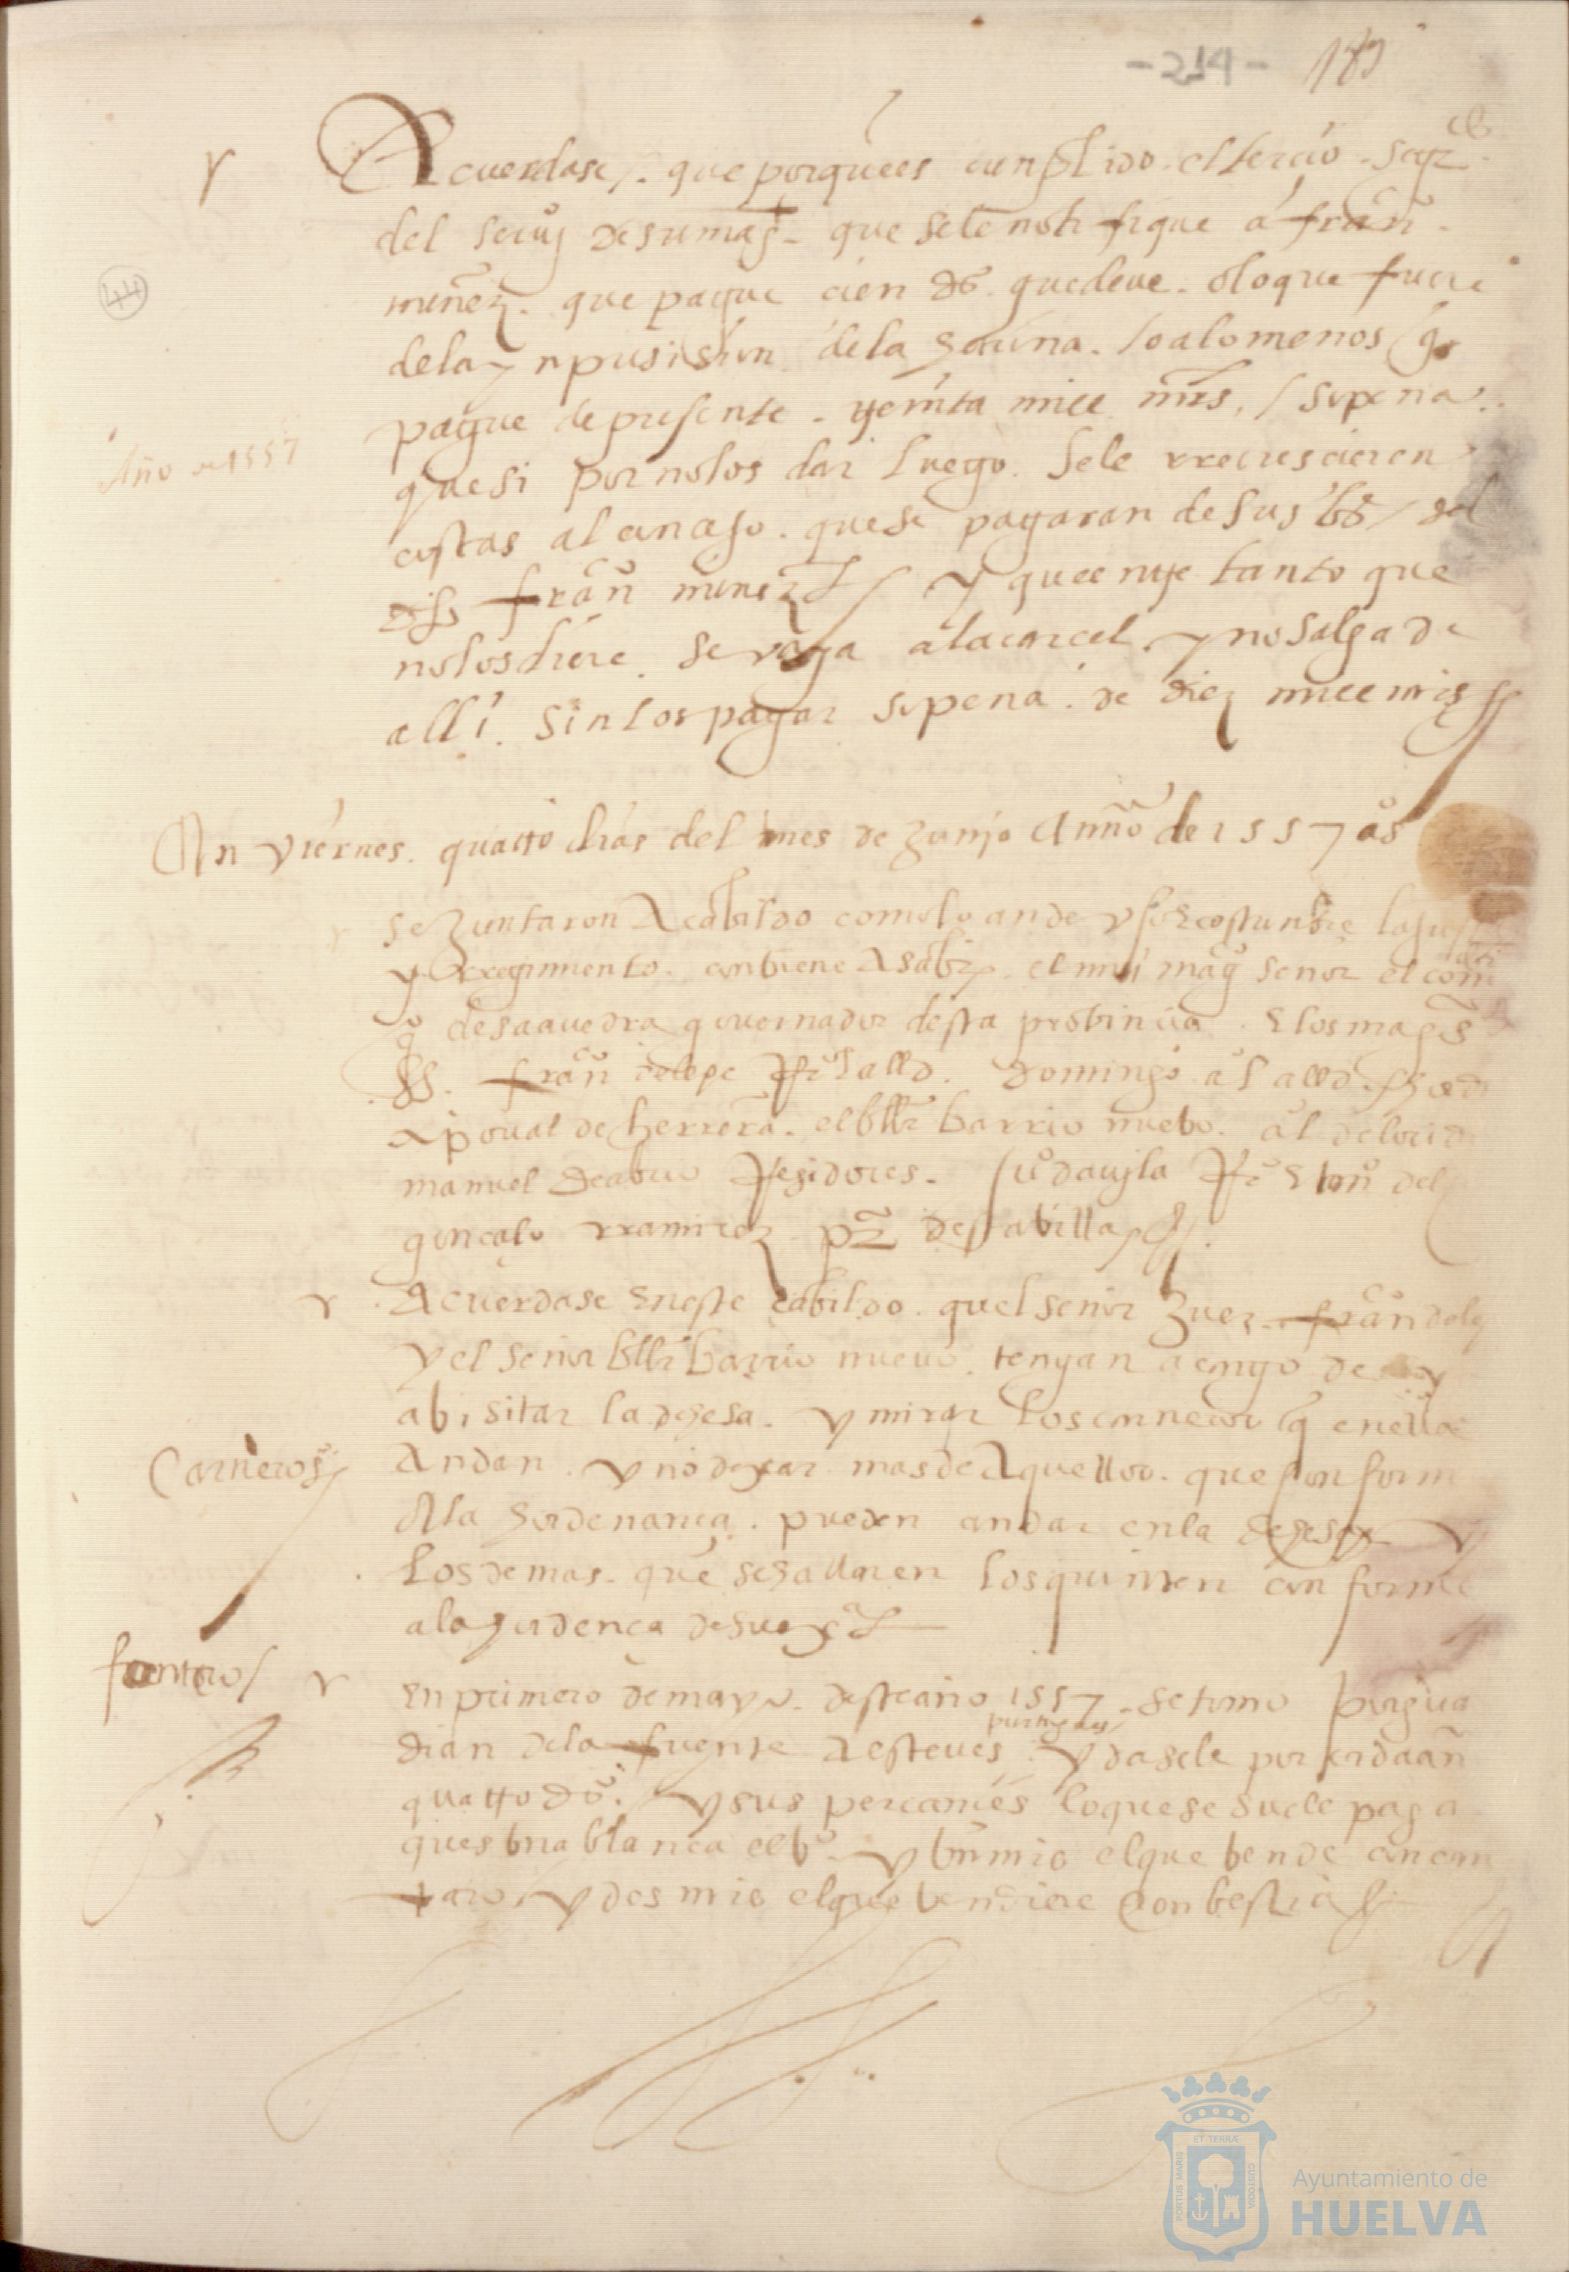 - 214 - 187
Acuerdase. que porques cunplido el tercio seg°
del serui° de su mag. que sele notifique a fran°
muñez. que pague cien ds. que deve. o lo que fuere
de la ynpusision de la harina. / o a lo menos q
pague de presente. treinta mill mrs, / so pena
que si por no los dar luego. sele rrecrescieren
costas al concejo. que se pagaran de sus bs / del
dho fran° muñez / y que entre tanto que
no los diere. se vaya a la carcel. y no salga de
alli. sin los pagar so pena. de diez mill mrs
44
Año de 1557
En viernes. quatro dias del mes de Junjo Anño de 1557 as
se Juntaron A cabildo como lo an de vso e costunbre la just
y rregimiento. conbiene A saber. el mui mag° señor el com
g° de saavedra governador desta probincia. E los mag cos
ss. fran° de lope alld. Domingo al alld
xpoual de herrera. el bllr barrio nuebo. al
manuel de abreo Regidores. Ju° dauila
gonçalo rramirez pr desta billa
Acuerdase En este cabildo. quel señor Juez fran° de lop
y el señor bllr barrio nuevo. tengan a cargo de
a bisitar la dehesa. y mirar los carneros q en ella
Carneros
Andan. y no dexar mas de Aquellos. que conform
A la hordenança. pueden andar en la dehesa y
los demas. que se hallaren los quinten conforme
a la hordença de suex°
fontero
En primero de mayo. deste año 1557. se tomo por gua
dian de la fuente A esteues portugues y dasele por cada añ
quatro ds. y sus percances lo que se suele paga
ques bna blanca el b° y bn mrs el que bende con can
taro, y dos mrs el que bendiere con bestia
ET TERRÆ
PORTUS MARIS
CUSTODIA
Ayuntamiento de
HUELVA